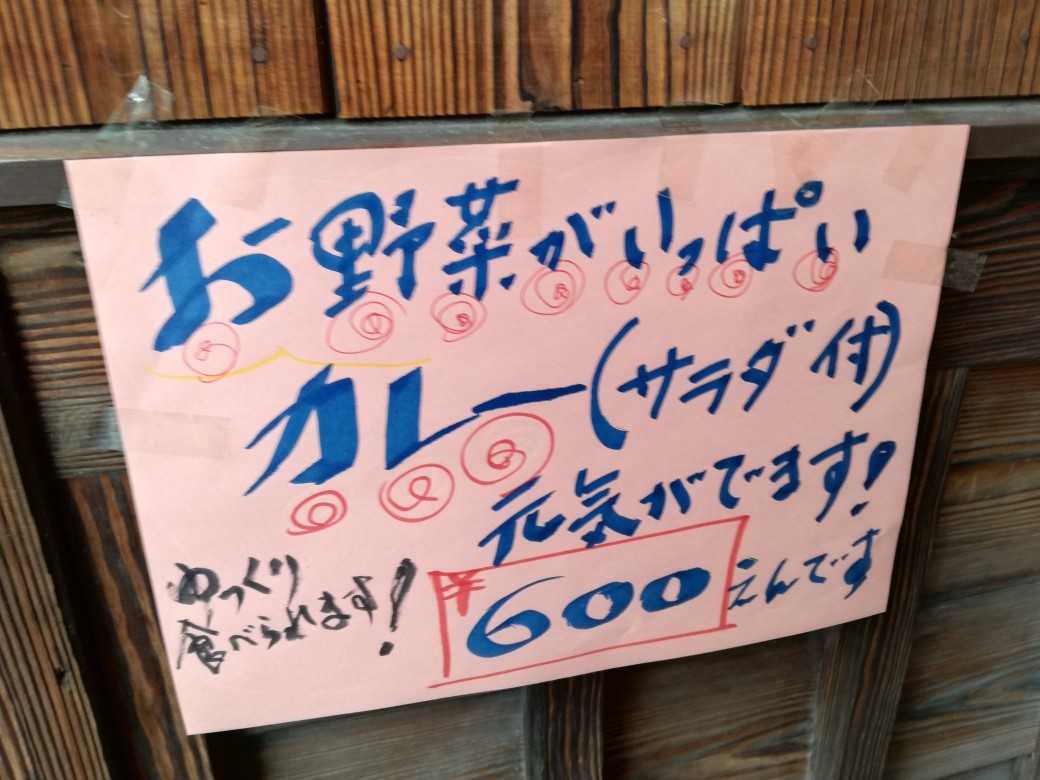 お野菜がいっぱい
カレー(サラダ付)
元気がでます!
¥600えんです
ゆっくり
食べられます!